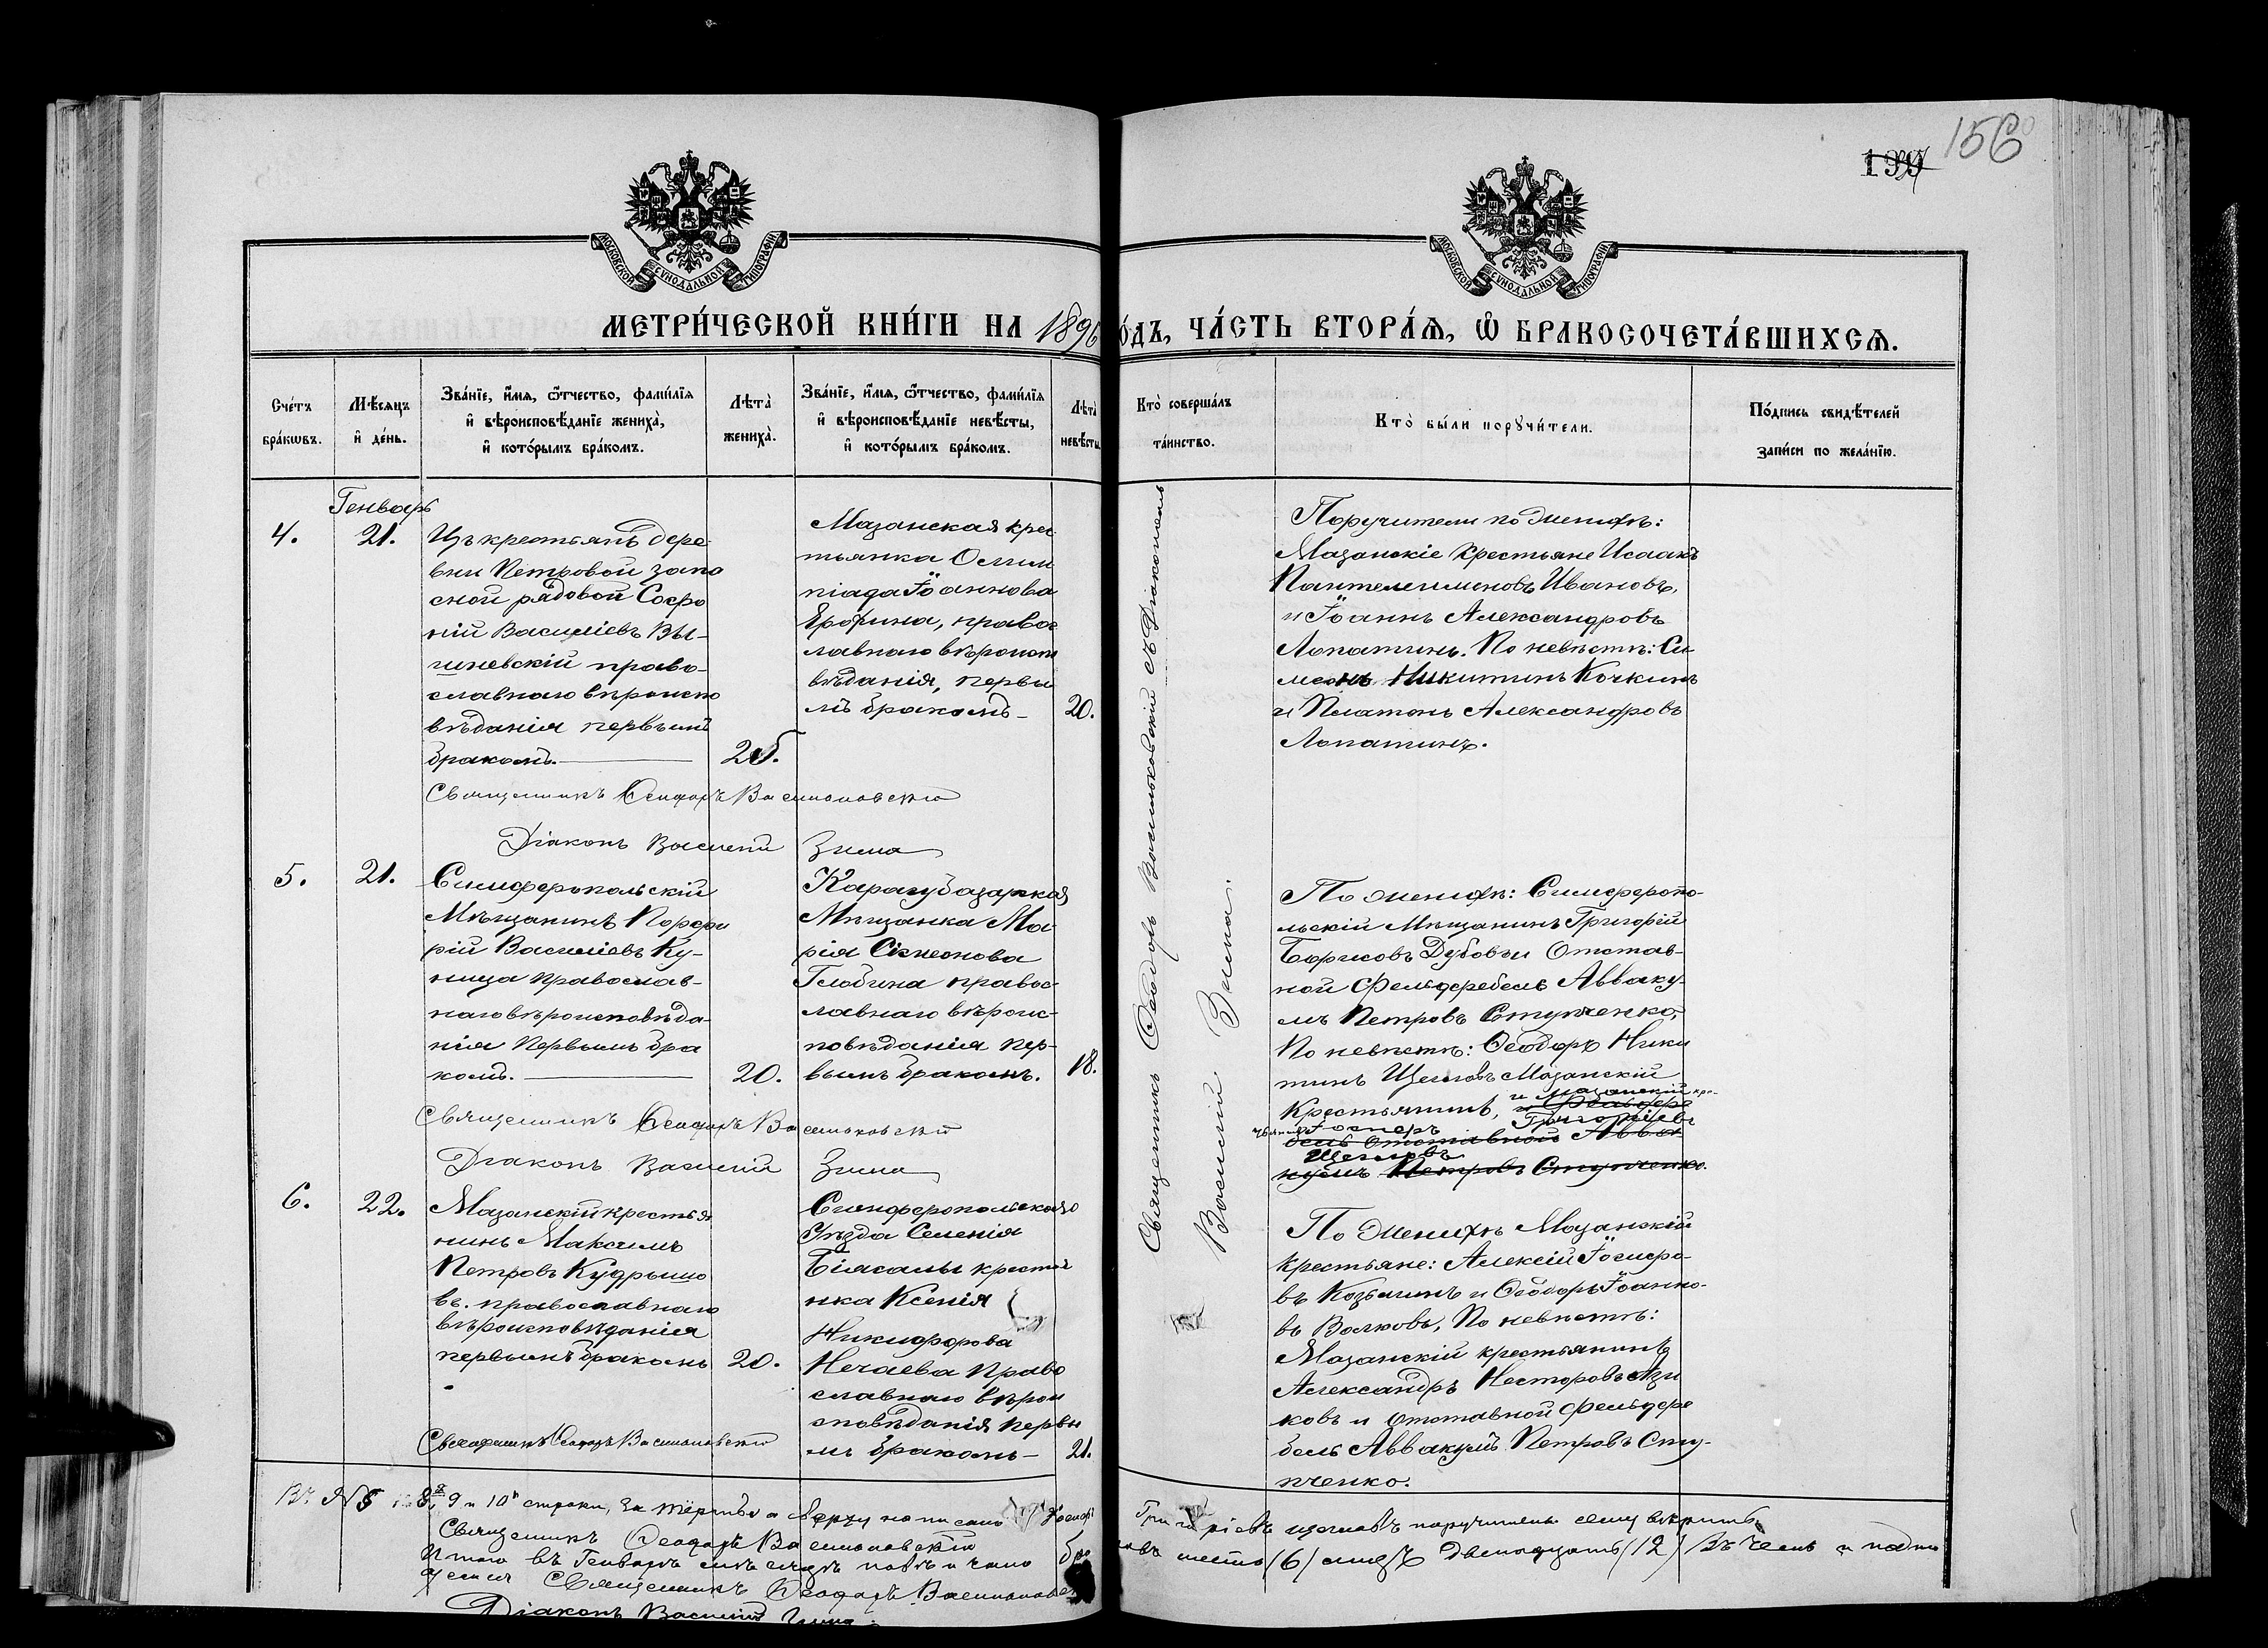 156
139
МОСКОВСКОЙ СѴНОДАЛЬНОЙ ТИПОГРАФІИ
МОСКОВСКОЙ СѴНОДАЛЬНОЙ ТИПОГРАФІИ
МЕТРИ́ЧЕСКОЙ КНИ́ГИ НА 1896
О́ДЪ, ЧА́СТЬ ВТОРА́Ѧ, Ѡ҆ БРАКОСОЧЕТА́ВШИХСѦ.
Счéтъ бра́кѡвъ.
Мѣ́сяцъ и҆ де́нь.
Зва́нїе, и҆́мѧ, ѻ҆́тчество, фами́лїѧ
и҆ вѣроисповѣ́данїе жениха̀,
и҆ кото́рымъ бра́комъ.
Лѣта̀ жениха̀.
Зва́нїе, и҆́мѧ, ѻ҆́тчество, фами́лїѧ
и҆ вѣроисповѣ́данїе невѣ́сты,
и҆ кото́рымъ бра́комъ.
Лѣта̀ невѣ́сты
Кто̀ соверша́лъ та́инство.
Кто̀ бы́ли порꙋчи́тели.
По́дпись свидѣ́телей
за́писи по жела́нїю.
Генварь
4.
21.
Изъ крестьянъ дере
вни Петровой запа
сной рядовой Софро
ній Василіевъ Вы-
шневскій право-
славнаго вѣроиспо
вѣданія первымъ
бракомъ.
25.
Мазанская крес
тьянка Олим
піада Іоаннова
Ерофина, правос
лавнаго вѣроисп
вѣданія, первы
мъ бракомъ
20.
Поручители по женихѣ:
Мазанскіе крестьяне Исаакъ
Пантелеимоновъ Ивановъ,
и Іоаннъ Александровъ
Лопатинъ. По невѣстѣ: Си
меонъ Никитинъ Кочкинъ
и Платонъ Александровъ
Лопатинъ.
Священникъ Ѳеодоръ Васильковскій
Діаконъ Василій Зима
Священникъ Ѳеодоръ Васильковскій съ Діакономъ
Василій Зима.
5.
21.
Симферопольскій
Мѣщанинъ Порфи
рій Василіевъ Ку-
ница Православ-
наго вѣроисповѣда-
нія первымъ бра
комъ.
20.
Карасубазаркая
Мѣщанка Ма
рія Симеонова
Глобина правос-
лавнаго вѣроис-
повѣданія пер-
вымъ бракомъ.
18.
По женихѣ: Симферопо-
льскій Мѣщанинъ Григорій
Борисовъ Дубовъ и Отстав-
ной Фельдфебель Авваку-
мъ Петровъ Ступченко,
По невѣстѣ: Ѳеодоръ Ники
тинъ Щегловъ Мазанскій
и Мазанскій кре-
Крестьянинъ, и Фельдфе
Григоріевъ
бель Отставной Авва
Щегловъ
кумъ Петровъ Ступченко.
Священникъ Ѳеодоръ Васильковскій
Діаконъ Василій Зима
6.
22.
Мазанскій крестья
нинъ Максимъ
Петровъ Кудряшо
въ. православнаго
вѣроисповѣданія
первымъ бракомъ
20.
Симферопольскаго
Уѣзда Селенія
Біясалы крестья
нка Ксенія
Никифорова
Нечаева Право
славнаго вѣрои
сповѣданія первы
мъ бракомъ
21.
По Женихѣ Мазанскій
крестьяне: Алексій Іосифо-
въ Козыминъ и Ѳеодоръ Іоанно-
въ Волковъ, По невѣстѣ:
Мазанскій крестьянинъ
Александръ Несторовъ Ази
ковъ и Отставной Фельдфе
бель Аввакумъ Петровъ Сту-
пченко.
Священникъ Ѳеодоръ Васильковскій
Въ № 5 8, 9 и 10й строки, зачёркнуто а сверху написано
Григоріевъ Щегловъ поручителемъ сему вѣрить
Священникъ Ѳеодоръ Васильковскій
Итого въ Генварѣ мѣсяцѣ повѣнчано бра
ковъ шесть (6) лицъ двенадцать (12) въ чемъ и подпи
Священникъ Ѳеодоръ Васильковскій
Діаконъ Василій Зима